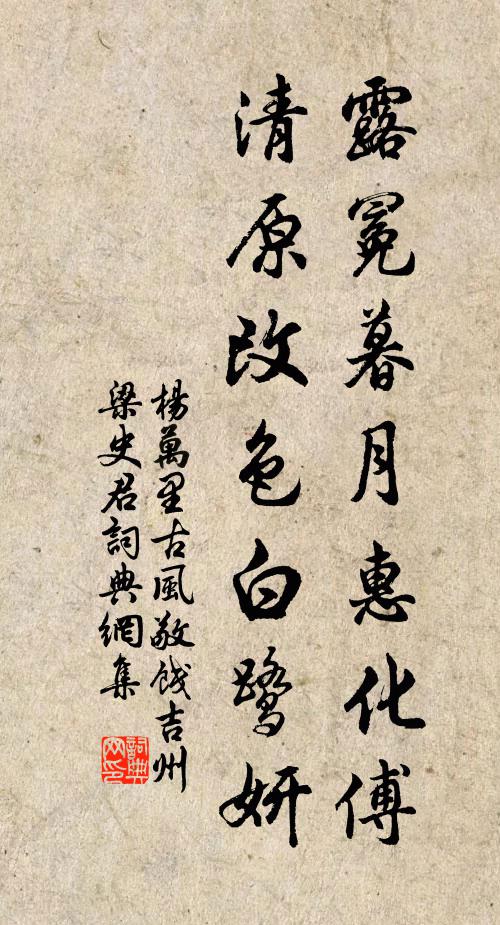 露冕暮月惠化傅
清原改色白鷺妍
楊萬里古風敬餞吉州
梁史君詞典網集
詞典网印